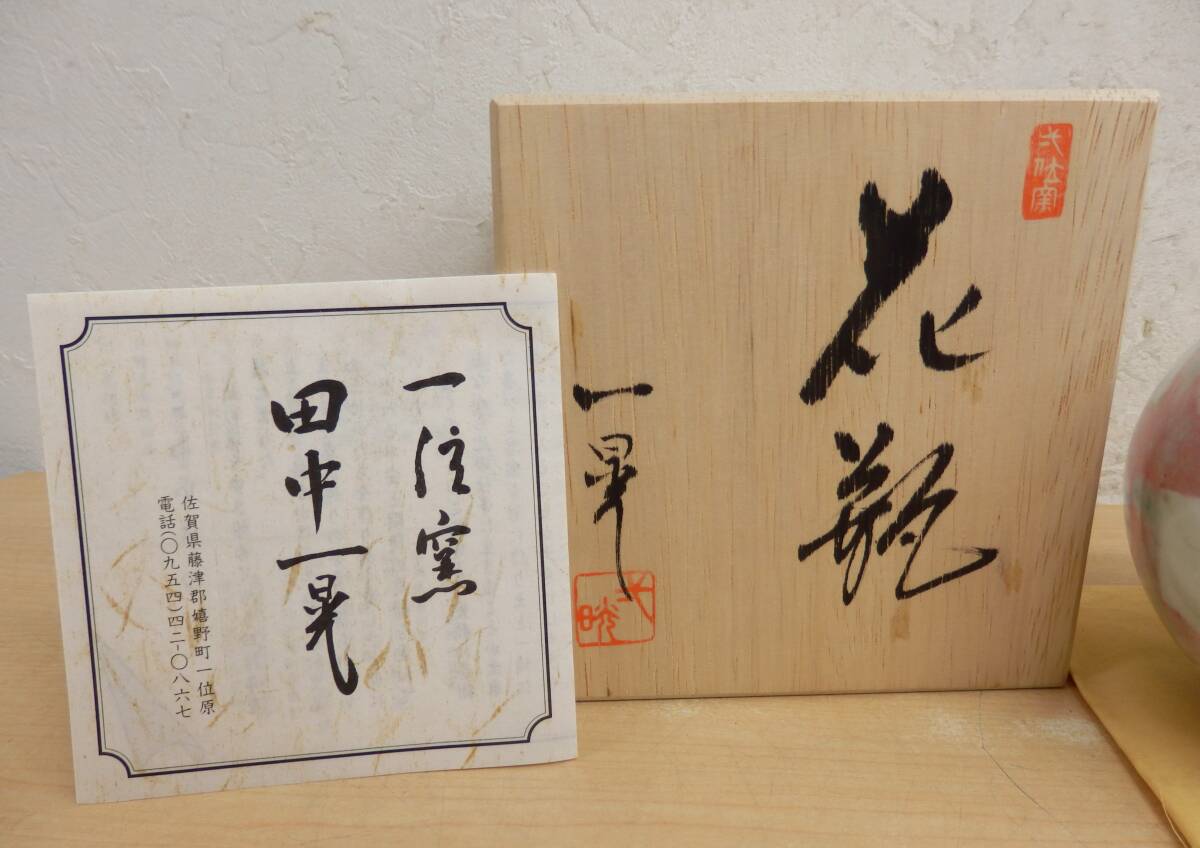 一位窯
田中一晃
佐賀県藤津郡嬉野町一位原
電話(〇九五四)四二-〇八六七
弌位窯
花瓶
一晃